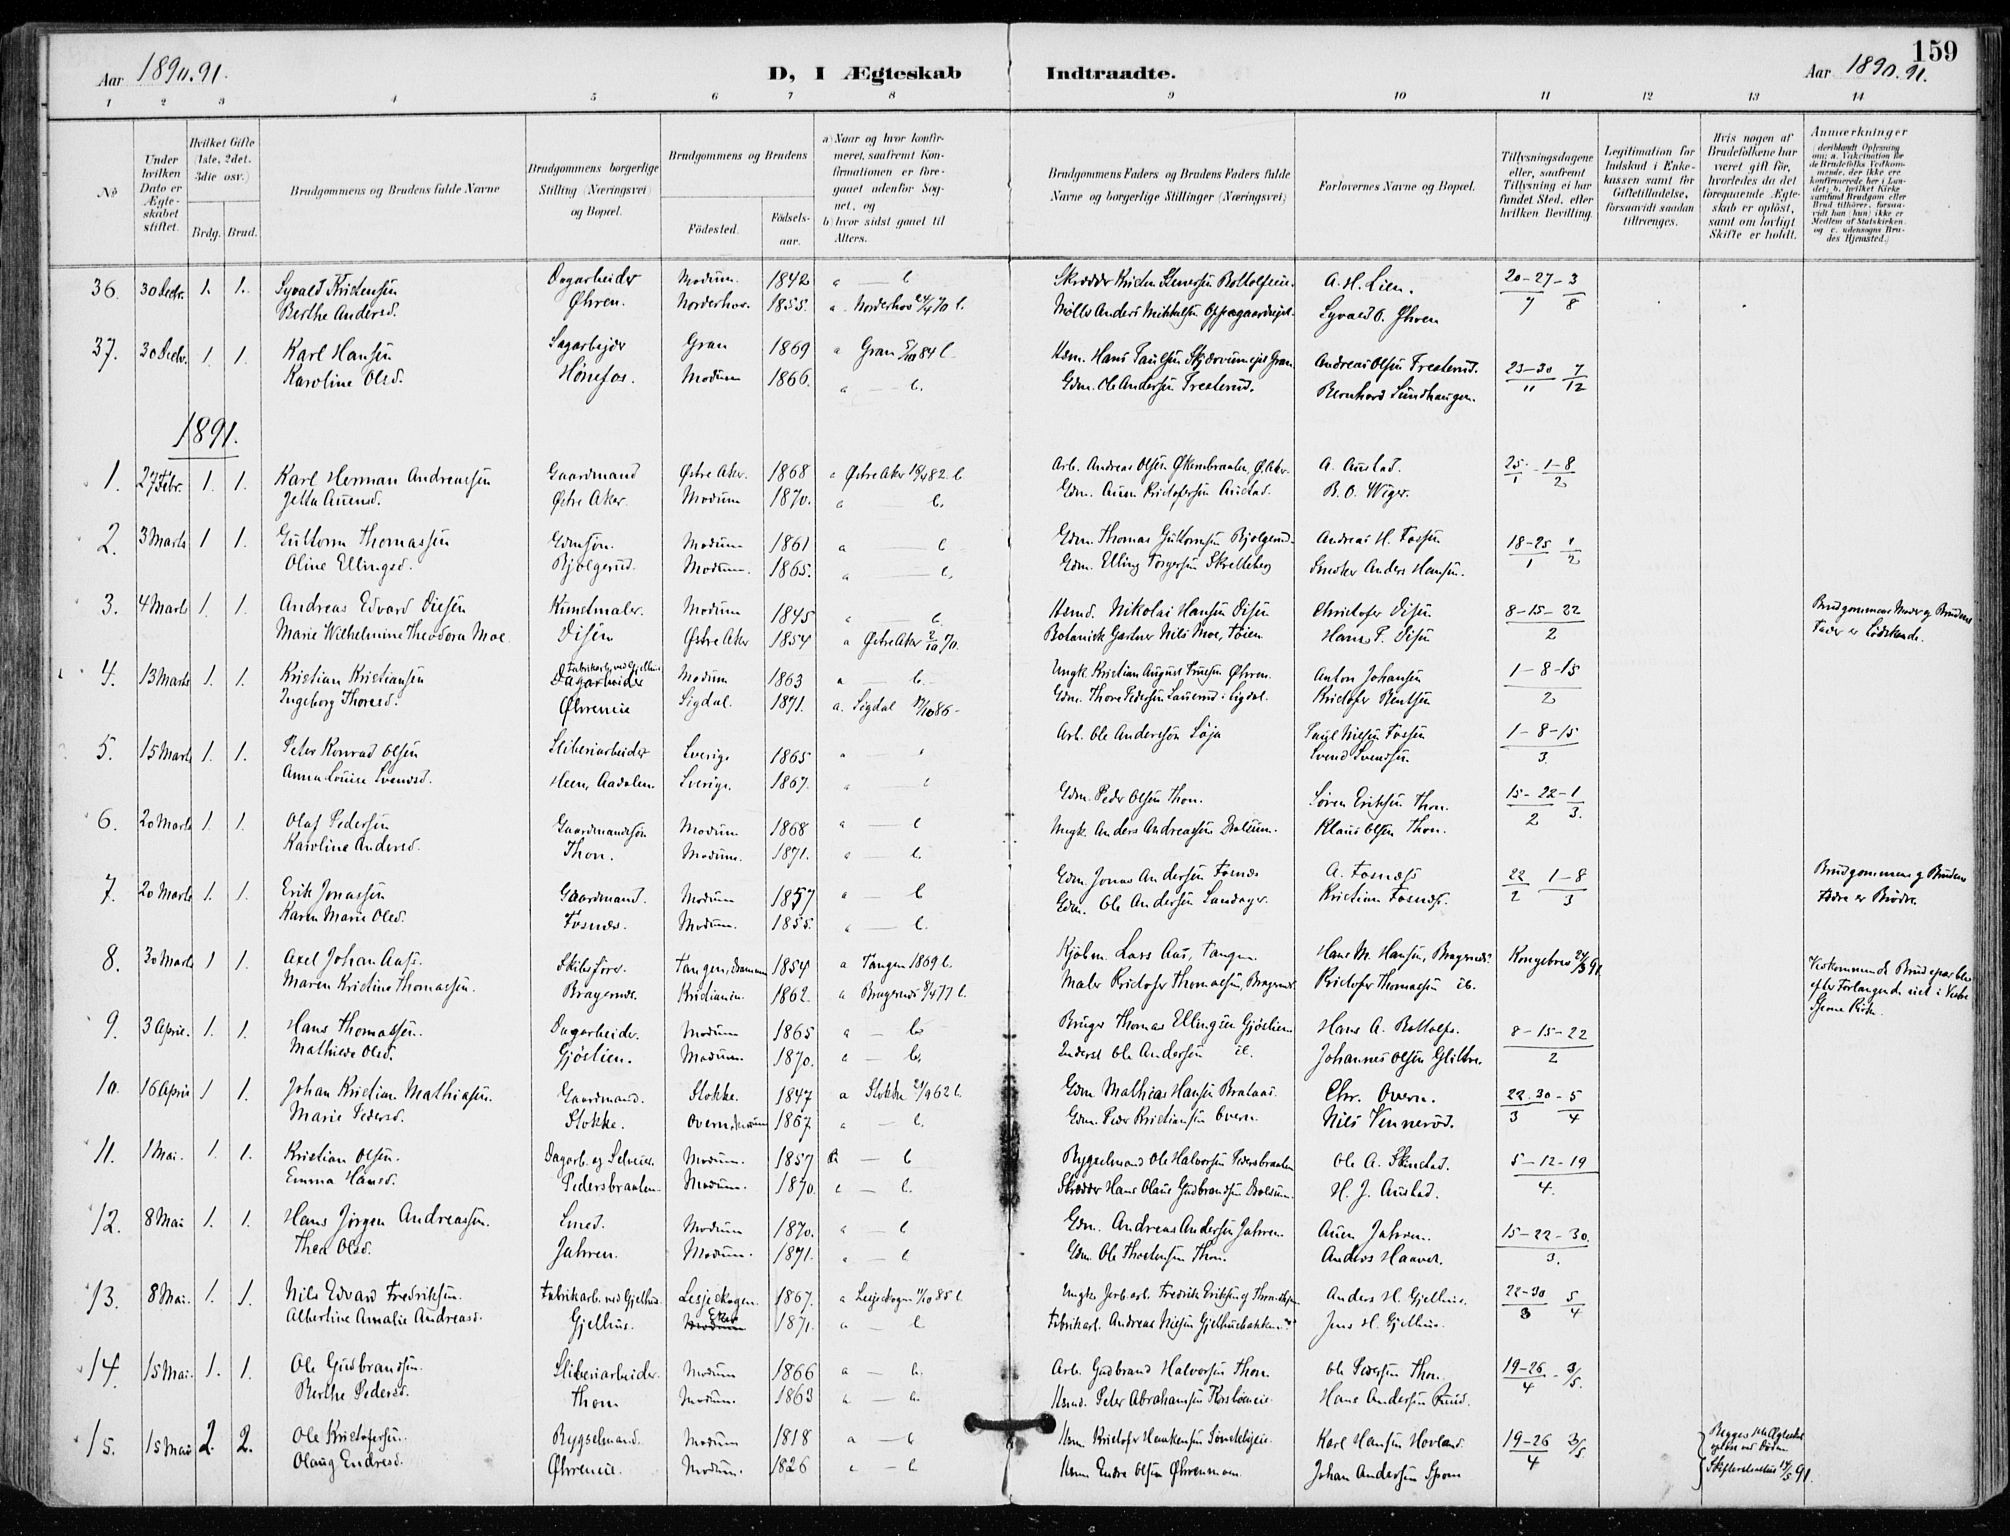 159
Aar 1890.91.
D, I Ægteskab
Indtraadte.
Aar 1890.91.
1 2 3 4 5 6 7 8 9 10 11 12 13 14
No
Under hvilken Dato er Ægteskabet stiftet.
Hvilket Gifte (1ste, 2det, 3die osv.)
Brdg. Brud.
Brudgommens og Brudens fulde Navne
Brudgommens borgerlige Stilling (Næringsvei) og Bopæl.
Brudgommens og Brudens
Fødested.
Fødselsaar.
a) Naar og hvor konfirmeret, saafremt Konfirmationen er foregaaet udenfor Sognet, og
b) hvor sidst gaaet til Alters.
Brudgommens Faders og Brudens Faders fulde Navne og borgerlige Stillinger (Næringsvei)
Forlovernes Navne og Bopæl.
Tillysningsdagene eller, saafremt Tillysning ei har fundet Sted, efter hvilken Bevilling.
Legitimation for Indskud i Enkekassen samt for Giftetilladelse, forsaavidt saadan tiltrænges.
Hvis nogen af Brudefolkene har været gift før, hvorledes da det foregaaende Ægteskab er opløst, samt om lovligt Skifte er holdt.
Anmærkninger (deriblandt Oplysning om: a. Vakcination for de Brudefolks Vedkommende, der ikke ere konfirmerede her i Landet; b. hvilket Kirkesamfund Brudgom eller Brud tilhører, forsaavidt han (hun) ikke er Medlem af Statskirken, og c. udensogns Brudes Hjemsted.)
36. 30 Decbr. 1. 1. Syvald Kristensen Dagarbeider Modum. 1842 a — b Skrædder Kristen Stenersen A. H. Lien. 20-27-3
Berthe Andersd. Øhren. Norderhov. 1855. a. Norderhov 24/4 70 b. Møller Anders Mikkelsen Syvald O. Øhren 7 8
37. 30 Decbr. 1. 1. Karl Hansen Sagarbejder Gran 1869 a Gran 5/10 84 b Hans Paulsen Gran Andreas Olsen Træterud. 23-30 7
Karoline Olsd. Hønefos. Modum 1866. a — b. Gdm. Ole Andersen Træterud. Bernhard Sundhaugen. 11 12
1891.
1. 27 Febr. 1. 1. Karl Herman Andreassen Gaardmand Østre Aker. 1868 a Østre Aker 82 b Arb. Andreas Olsen Ø. Aker A. Austad. 25 1-8
Jetta Auensd. Østre Aker. Modum 1870. a — b. Gdm. Auen Kristofersen Austad. B. O. Wiger. 1 2
2. 3 Marts 1 1. Guttorm Thomassen Gdmsøn. Modum 1861 a — b Gdm. Thomas Guttormsen Bjølgerud. Andreas H. Fossen 18-25 1
Oline Ellingsd. Bjølgerud. Modum. 1865. a — b. Gdm. Elling Torgersen Skretteberg Snedker Anders Hansen. 1 2
3. 4 Marts 1. 1. Andreas Edvard Disen Kunstmaler. Modum 1845 a — b. Nikolai Hansen Disen Christofer Disen 8-15-22 Brudgommens Moder og Brudens
Marie Wilhelmine Theodora Moe Disen Østre Aker 1854 a Østre Aker 2/10 70. Botanisk Gartner Nils Moe, Tøien Hans P. Disen 2 Fader er Sødskende.
4. 13 Marts 1. 1. Kristian Kristiansen Fabrikarb. ved Gjelhus Dagarbeider Modum 1863 a — b. Ungk. Kristian August Øhren. Anton Johansen 1-8-15
Ingeborg Thoresd. Øhreneie Sigdal. 1871. a. Sigdal 17/10 86. Gdm. Thore Pedersen i Sigdal. Kristofer 2
5. 15 Marts 1. 1. Peter Konrad Olsen Sliberiarbeider Sverige 1865 a Arb. Ole Andersson Paul Nielsen Fossen 1-8-15
Anna Louise Svensd. Heen, Aadalen. Sverige. 1867. a — b Svend Svendsen 3.
6. 20 Marts 1. 1. Olaf Pedersen Gaardmandssøn Modum 1868 a — b Gdm. Peder Olsen Thon. Søren Eriksen Thon. 15-22-1
Karoline Andersd. Thon. Modum. 1871. a — b. Ungk. Anders Andreassen Dalsum. Klaus Olsen Thon. 2 3.
7. 20 Marts 1. 1. Erik Jonassen Gaardmand. Modum 1857 a — b Gdm. Jonas Andersen Fosnæs A. Fosnæs 22 1-8 Brudgommens og Brudens
Karen Marie Olsd. Fosnæs. Modum. 1855. a — b. Gdm. Ole Andersen Sandager. Kristian Fosnæs. 2 3 Fædre er Brødre.
8. 30 Marts 1 1. Axel Johan Aass. Skibsfører. Tangen, Drammen 1854 a Tangen 1869 b. Kjøbm. Lars Aas, Tangen Hans M. Hansen, Bragernæs. Kongebrev 91. Vedkommende Brudepar blev
Maren Kristine Thomassen. Bragernæs. Kristiania. 1862. a Bragernæs 8/4 77 b. Maler Kristofer Thomassen, Bragernæs Kristofer Thomassen ib. efter Forlangende viet i
9. 3 April. 1. 1. Hans Thomassen. Dagarbeider. Modum 1865 a — b. Bruger Thomas Ellingsen Gjøslien. Hans A. Bottolfs. 8-15-22
Mathilde Olsd. Gjøslien. Modum. 1870. a — b. Inderst Ole Andersen ib. Johannes Olsen 2
10. 16 April 1 1. Johan Kristian Mathiassen. Gaardmand. Stokke. 1847 a Stokke 21/9 62 b. Gdm Mathias Hansen Brataas. Chr. Overn. 22.30-5
Marie Pedersd. Stokke. Overn, Modum 1867. a — b. Gdm. Peder Kristiansen Overn. Nils Vennerød. 3 4
11. 1 Mai. 1. 1. Kristian Olsen. Dagarb. og Selveier. Modum. 1857 a — b Rygselmand Ole Halvorsen Pedersbraaten Ole A. Skinstad. 5-12-19
Emma Hansd. Pedersbraaten. Modum. 1870. a — b. Skrædder Hans Olaus Gudbrandsen Dalsum. H. J. Austad. 4.
12. 8 Mai 1. 1. Hans Jørgen Andreassen. Smed. Modum 1870. a — b Gdm. Andreas Andersen Jahren. Auen Jahren. 15-22-30.
Thea Olsd. Jahren. Modum. 1871. a — b Gdm. Ole Thorstensen Thon. Anders Haaver. 3.
13. 8 Mai. 1. 1. Nils Edvard Fredriksen. Fabrikarb. ved Gjelhus. Lesjeskogen. 1867. a Lesjeskogen 11/10 85 b. Ungk. Jerb.arb. Fredrik Eriksen Anders H. Gjelhus. 22-30 5
Albertine Amalie Andreasd. Gjelhus. Eker Modum 1871. a — b Fabrikarb. Andreas Nielsen Gjelhusbakken Jens H. Gjelhus. 3 4
14. 15 Mai. 1. 1. Ole Gudbrandsen. Sliberiarbeider. Modum 1866 a — b. Arb. Gudbrand Halvorsen Thon. Ole Pedersen Thon. 19-26 3/5.
Berthe Pedersd. Thon Modum. 1863 a — b. Husmd. Peter Abrahamsen Hans Andersen Ruud. 4
15. 15 Mai 2. 2. Ole Kristofersen. Rygselmand. Modum 1818 a — b Kristofer Haakensen Karl Hansen Hovland. 19-26 3/5. Begges 1ste Ægteskab
Olaug Endresd. Øhreneie. Modum. 1826 a — b Endre Olsen Øhrenmoen. Johan Andersen 4 opløst ved Døden. Skifteretsattest 14/5 91.